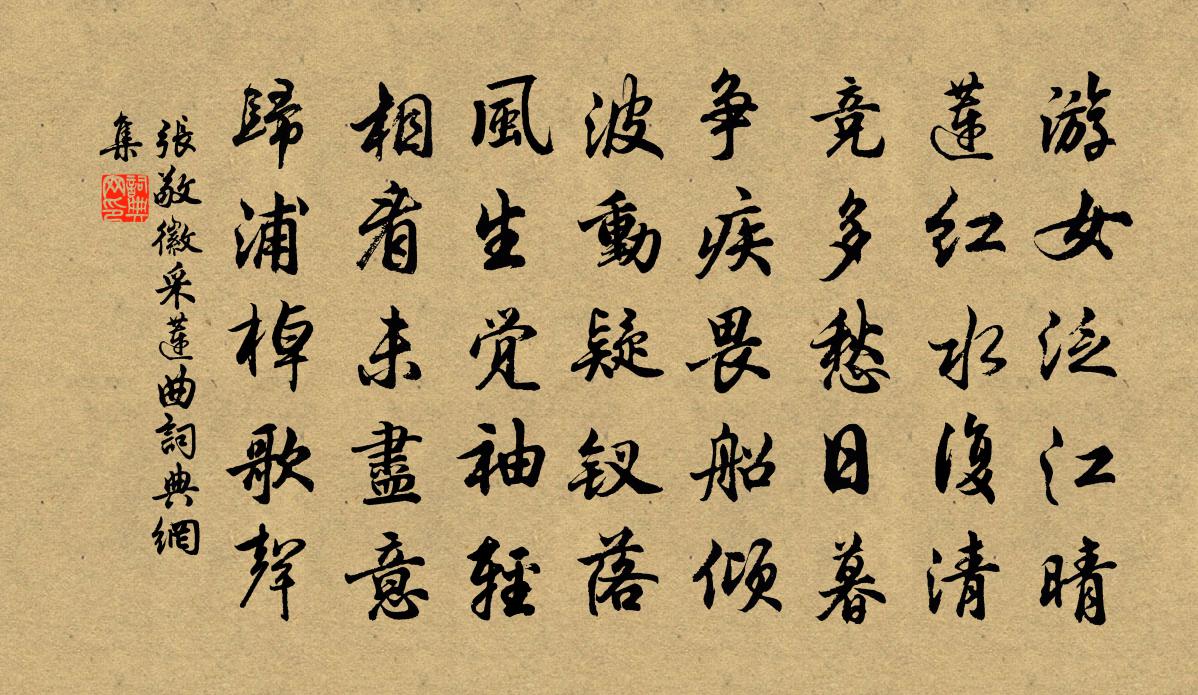 游女泛江晴
蓮红水復清
竞多愁日暮
争疾畏船倾
波動疑钗落
風生觉袖輕
相看未盡意
歸浦棹歌聲
張敬徽采蓮曲詞典網
集
詞典
网印